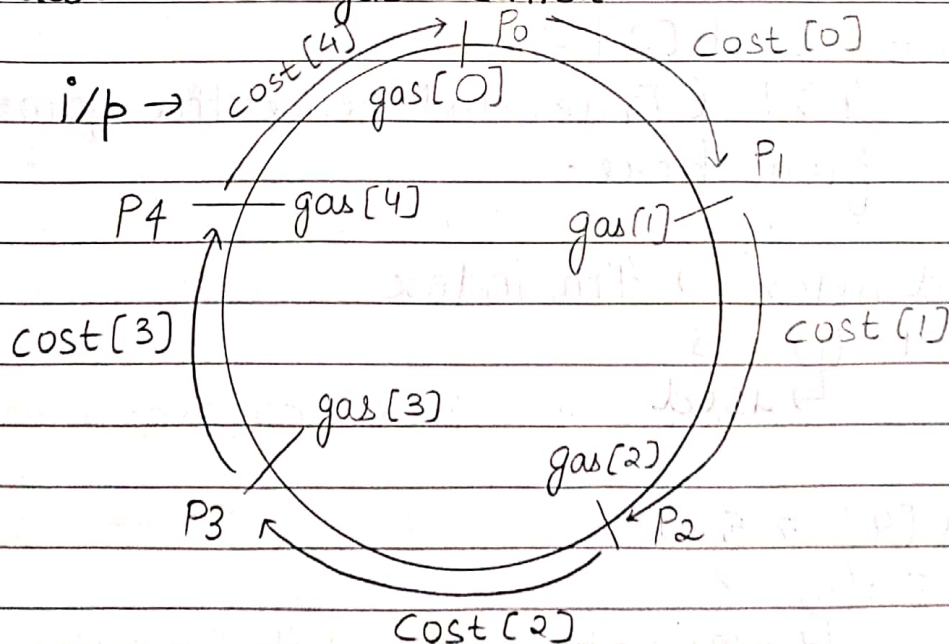 cost[4]
P0
cost[0]
i/p →
gas[0]
P1
P4
gas[4]
gas[1]
cost[3]
cost[1]
gas[3]
gas[2]
P3
P2
cost[2]